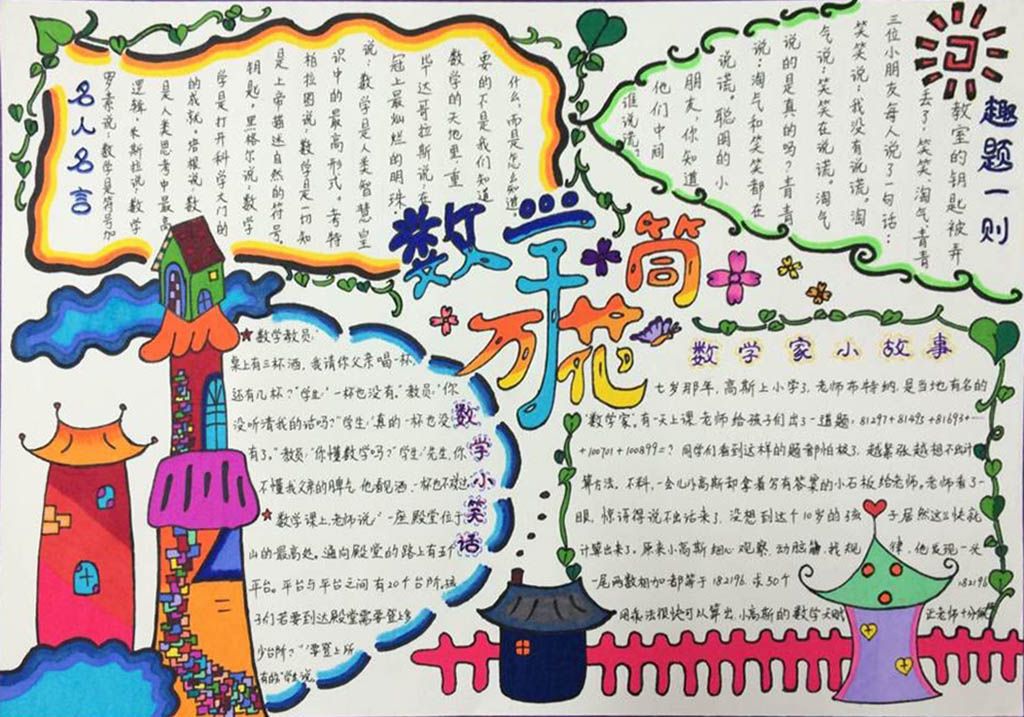 名人名言
罗素说:数学是符号加
逻辑。米斯拉说,数学
是人类思考中最高
的成就。培根说:数
学是打开科学大门的
钥匙。黑格尔说:数学
是上帝描述自然的符号。
柏拉图说:数学是一切知
识中的最高形式。考特
说:数学是人类智慧皇
冠上最灿烂的明珠
毕达哥拉斯说:在
数学的天地里,重
要的不是我们知道
什么,而是怎么知道。
趣题一则
教室的钥匙被弄
丢了,笑笑、淘气、青青
三位小朋友每人说了一句话:
笑笑说:我没有说谎。淘
气说:笑笑在说谎。淘气
说的是真的吗?青青
说:淘气和笑笑都在
说谎。聪困的小
朋友,你知道
他们中间
谁说谎
数学万花筒
数学小笑话
★数学教员:
桌上有三杯酒,我请你父亲喝一杯,
还有几杯?"学生:"一杯也没有。"教员:"你
没听清我的话吗?"学生:"真的一杯也没
有了。"教员:"你懂数学吗?"学生:"先生,你
不懂我父亲的脾气,他看见酒,一杯也不放过。
★数学课上,老师说:"一座殿堂位于
山的最高处。通向殿堂的路上有五个
平台。平台与平台之间有20个台阶,孩
子们若要到达殿堂需要登上多
少台阶?""要登上所
有的"学生说。
数学家小故事
七岁那年,高斯上小学了,老师布特纳,是当地有名的
"数学家"。有一天上课,老师给孩子们出了一道题:81297+81495+81693+…
+100701+100899=?同学们看到这样的题都怕极了,越紧张越想不出计
算方法。不料,一会儿小高斯却拿着写有答案的小石板给老师。老师看了一
眼,惊讶得说不出话来了,没想到这个10岁的孩子居然这么快就
计算出来了。原来小高斯细心观察,动脑筋,找规律,他发现一头
一尾两数相加都等于182196,求50个182196
用乘法很快可以算出,小高斯的数学天